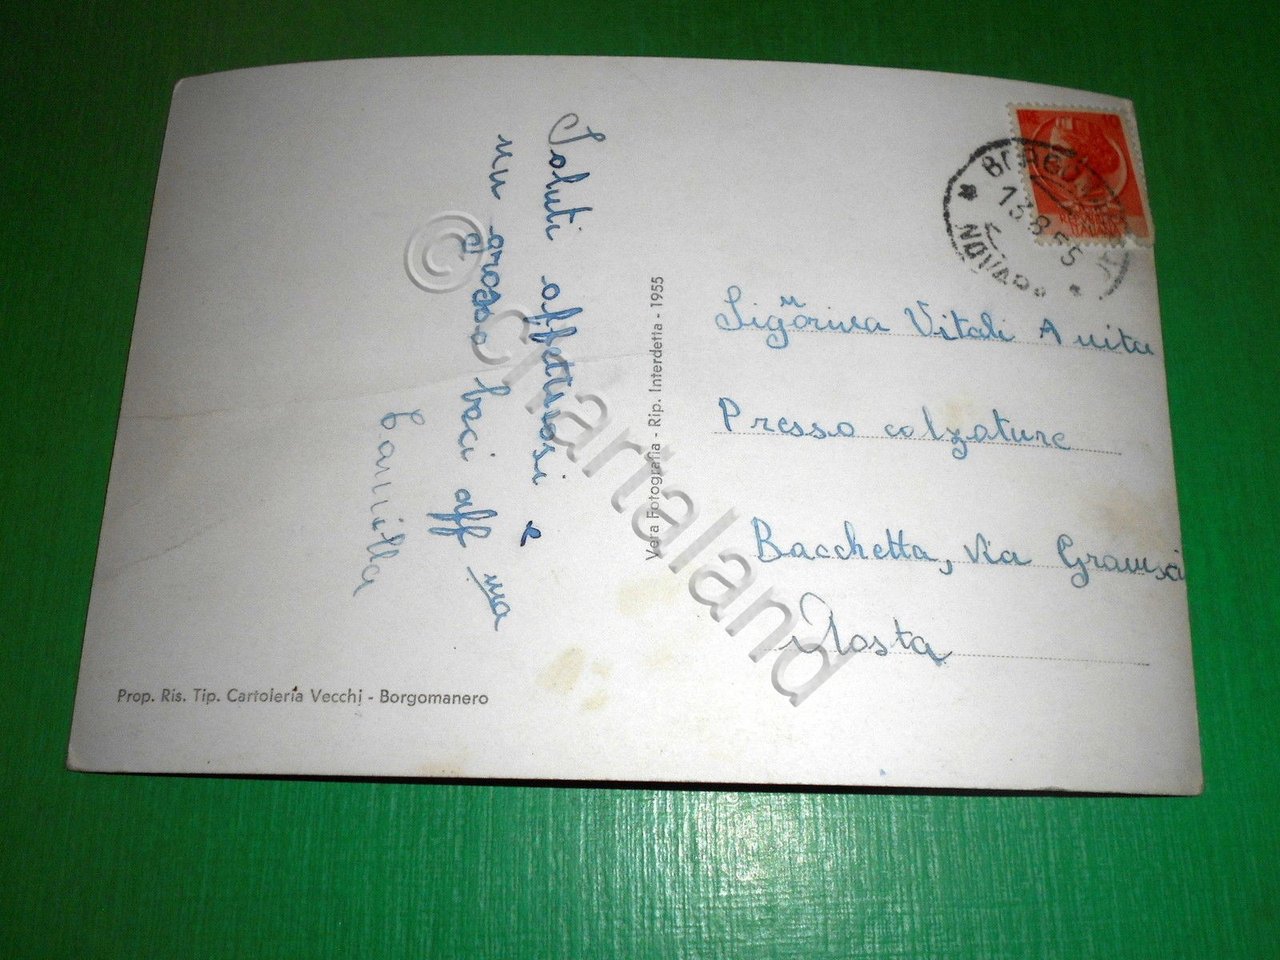 Saluti affettuosi e
un grosso baci aff ma
Camilla
Vera Fotografia - Rip. Interdetta - 1955
Prop. Ris. Tip. Cartoleria Vecchi - Borgomanero
BORGOMANERO
13.8.55
NOVARA
ITALIANA
Signorina Vitali Anita
Presso calzature
Bacchetta, via Gramsci
Aosta
© Chartaland